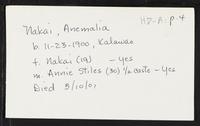 Nakai, Anemalia HD-A: p. 4
b. 11-23-1900, Kalawao
f. Nakai (19) — yes
m. Annie Stiles (30) 1/2 caste - yes
Died 3/10/01